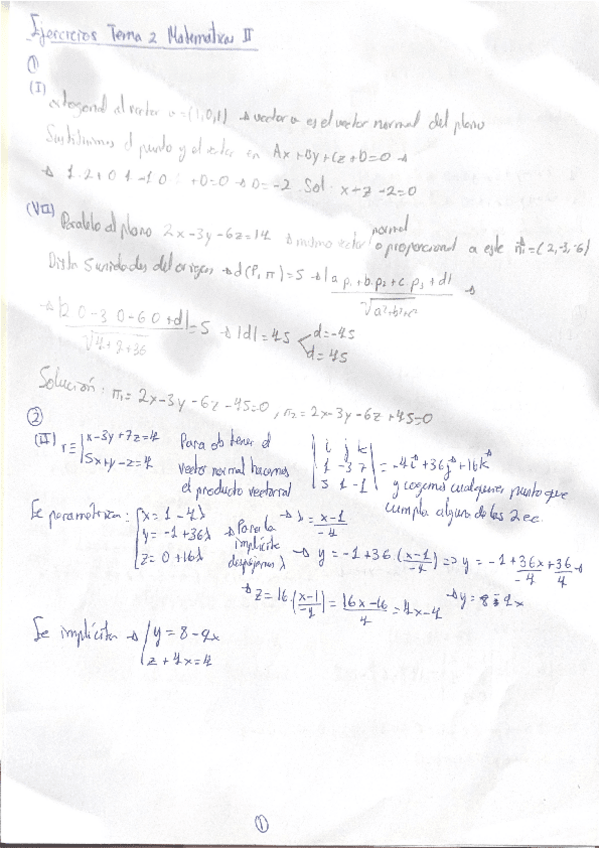 Ejercicios Tema 2 Matemáticas II
①
(I)
ortogonal al vector u=(1,0,1) → vector u es el vector normal del plano
Sustituimos el punto y el vector en Ax+By+Cz+D=0 →
→ 1·2+0·1-1·0 +D=0 → D=-2 Sol: x+z-2=0
(VII) Paralelo al plano 2x-3y-6z=14 → mismo vector normal o proporcional a este n₁=(2,-3,-6)
Dista 5 unidades del origen → d(P,π)=5 → |a·p₁+b·p₂+c·p₃+d| / √a²+b²+c² →
→ |2·0-3·0-6·0+d| / √4+9+36 =5 → |d|=45 d=-45
d=45
Solución: π₁= 2x-3y-6z-45=0, π₂=2x-3y-6z+45=0
②
(II) r≡ x-3y+7z=4
5x+y-z=4
Para obtener el
vector normal hacemos
el producto vectorial
| i j k |
| 1 -3 7 | = -4i+36j+16k
| 5 1 -1 |
y cogemos cualquier punto que
cumpla alguna de las 2 ec.
Ec parametrica: x=1-4λ
y=-1+36λ
z=0+16λ
→ Para la
implícita
despejamos λ
→ λ= x-1 / -4
→ y=-1+36·(x-1 / -4) => y=-1+ 36x / -4 + 36 / 4 →
→ y=8-9x
→ z=16·(x-1 / -4) = 16x-16 / 4 = 4x-4
Ec implícita → y=8-9x
z+4x=4
①